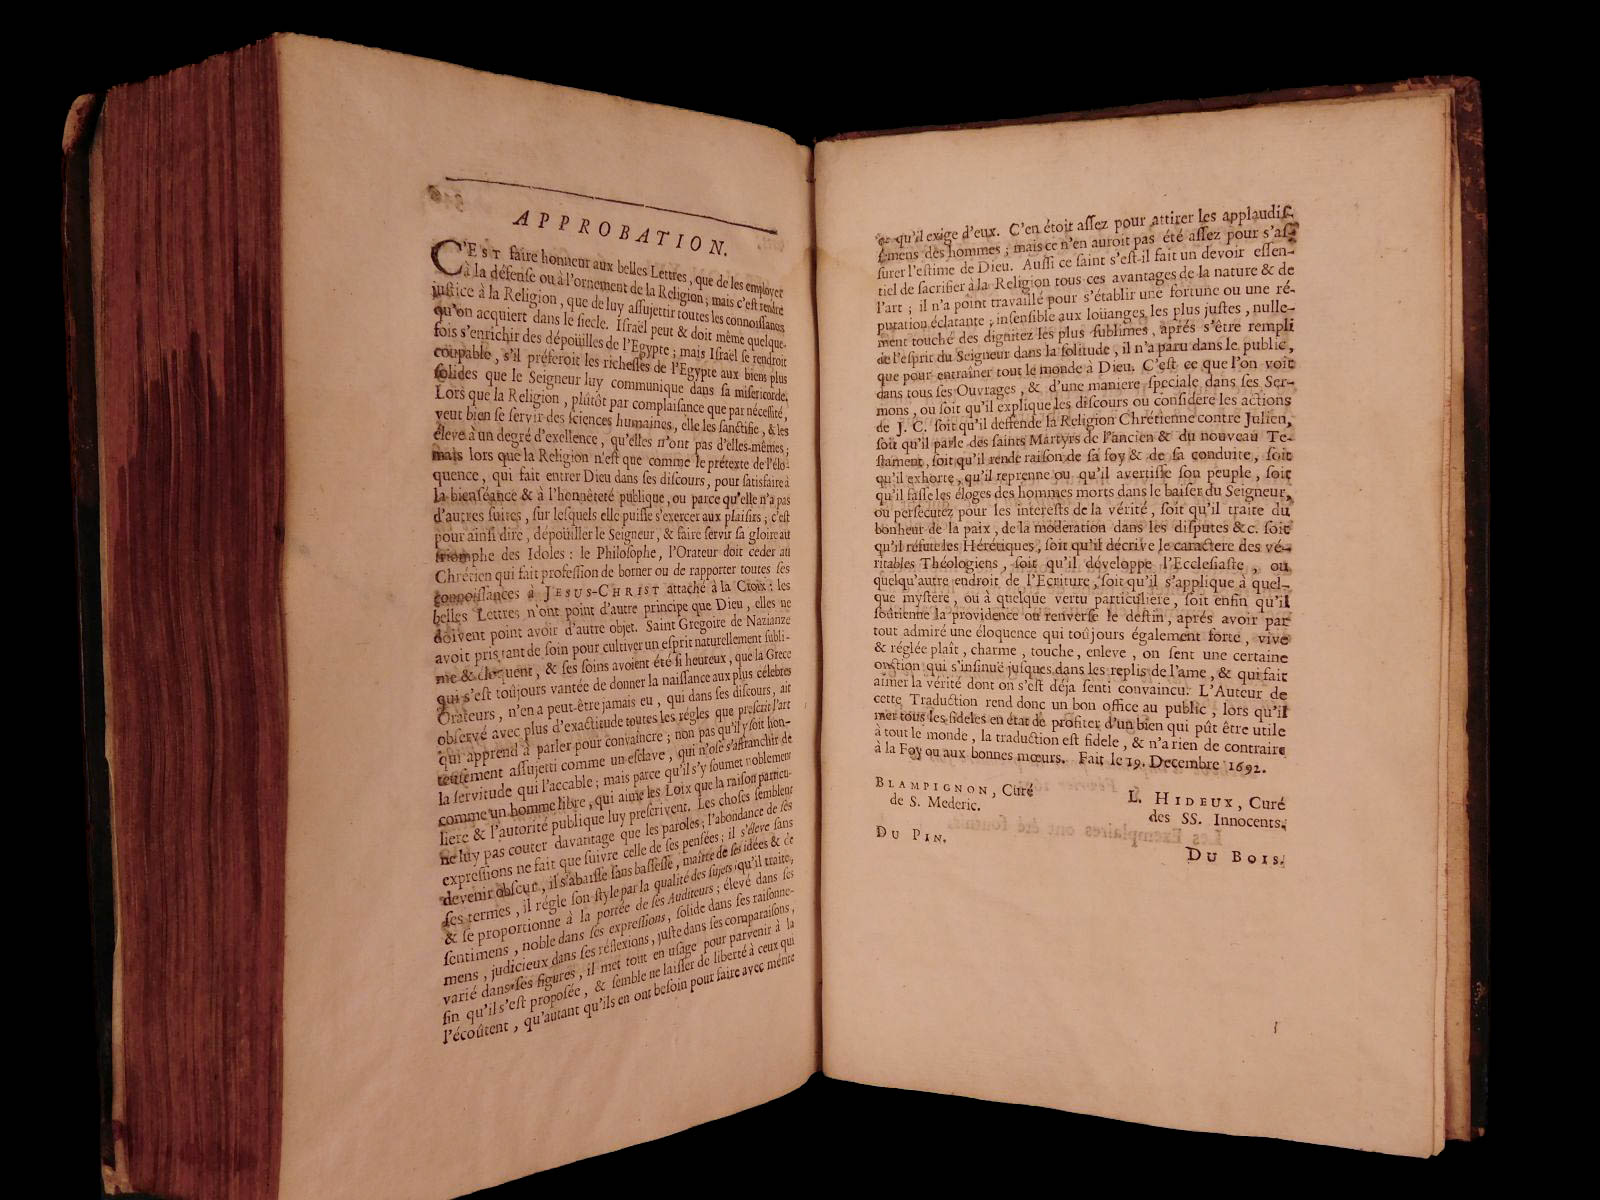 APPROBATION.
C'EST faire honneur aux belles Lettres, que de les employer
à la défense ou à l'ornement de la Religion; mais c'est rendre
justice à la Religion, que de luy assujettir toutes les connoissances
qu'on acquiert dans le siecle. Israël peut & doit même quelque-
fois s'enrichir des dépoüilles de l'Egypte; mais Israël se rendroit
coupable, s'il préferoit les richesses de l'Egypte aux biens plus
solides que le Seigneur luy communique dans sa misericorde.
Lors que la Religion, plûtôt par complaisance que par nécessité,
veut bien se servir des sciences humaines, elle les sanctifie, & les
éleve à un degré d'exellence, qu'elles n'ont pas d'elles-mêmes;
mais lors que la Religion n'est que comme le prétexte de l'élo-
quence, qui fait entrer Dieu dans ses discours, pour satisfaire à
la bienséance & à l'honnêteté publique, ou parce qu'elle n'a pas
d'autres suites, sur lesquels elle puisse s'exercer aux plaisirs; c'est
pour ainsi dire, dépoüiller le Seigneur, & faire servir sa gloire au
triomphe des Idoles: le Philosophe, l'Orateur doit ceder au
Chrétien qui fait profession de borner ou de rapporter toutes ses
connoissances à JESUS-CHRIST attaché à la Croix; les
belles Lettres n'ont point d'autre principe que Dieu, elles ne
doivent point avoir d'autre objet. Saint Gregoire de Nazianze
avoit pris tant de soin pour cultiver un esprit naturellement subli-
me & éloquent, & ses soins avoient été si heureux, que la Grece
qui s'est toûjours vantée de donner la naissance aux plus célébres
Orateurs, n'en a peut-être jamais eu, qui dans ses discours, ait
observé avec plus d'exactitude toutes les régles que prescrit l'art
qui apprend à parler pour convaincre; non pas qu'il y soit hon-
teusement assujetti comme un esclave, qui n'ose s'affranchir de
la servitude qui l'accable; mais parce qu'il s'y soumet noblement
comme un homme libre, qui aime les Loix que la raison particu-
liere & l'autorité publique luy prescrivent. Les choses semblent
ne luy pas couter davantage que les paroles; l'abondance de ses
expressions ne fait que suivre celle de ses pensées; il s'éleve sans
devenir obscur, il s'abaisse sans bassesse, maître de ses idées & de
ses termes, il régle son style par la qualité des sujets qu'il traite,
& se proportionne à la portée de ses Auditeurs; élevé dans ses
sentimens, noble dans ses expressions, solide dans ses raisonne-
mens, judicieux dans ses réflexions, juste dans ses comparaisons,
varié dans ses figures, il met tout en usage pour parvenir à la
fin qu'il s'est proposée, & semble ne laisser de liberté à ceux qui
l'écoûtent, qu'autant qu'ils en ont besoin pour faire avec mérite
ce qu'il exige d'eux. C'en étoit assez pour attirer les applaudis-
semens des hommes; mais ce n'en auroit pas été assez pour s'as-
surer l'estime de Dieu. Aussi ce saint s'est-il fait un devoir essen-
tiel de sacrifier à la Religion tous ces avantages de la nature & de
l'art; il n'a point travaillé pour s'établir une fortune ou une ré-
putation éclatante; insensible aux loüanges les plus justes, nulle-
ment touché des dignitez les plus sublimes, aprés s'être rempli
de l'esprit du Seigneur dans la solitude, il n'a paru dans le public,
que pour entraîner tout le monde à Dieu. C'est ce que l'on voit
dans tous ses Ouvrages, & d'une maniere speciale dans ses Ser-
mons, ou soit qu'il explique les discours ou considére les actions
de J. C. soit qu'il deffende la Religion Chrétienne contre Julien,
soit qu'il parle des saints Martyrs de l'ancien & du nouveau Te-
stament, soit qu'il rende raison de sa foy & de sa conduite, soit
qu'il exhorte, qu'il reprenne ou qu'il avertisse son peuple, soit
qu'il fasse les éloges des hommes morts dans le baiser du Seigneur,
ou persecutez pour les interests de la vérité, soit qu'il traite du
bonheur de la paix, de la moderation dans les disputes &c. soit
qu'il réfute les Hérétiques, soit qu'il décrive le caractere des vé-
ritables Théologiens, soit qu'il développe l'Ecclesiaste, ou
quelqu'autre endroit de l'Ecriture, soit qu'il s'applique à quel-
que mystére, ou à quelque vertu particuliere, soit enfin qu'il
soûtienne la providence ou renverse le destin, aprés avoir par
tout admiré une éloquence qui toûjours également forte, vive
& réglée plaît, charme, touche, enleve, on sent une certaine
onction qui s'insinuë jusques dans les replis de l'ame, & qui fait
aimer la vérité dont on s'est déja senti convaincu. L'Auteur de
cette Traduction rend donc un bon office au public, lors qu'il
met tous les fideles en état de profiter d'un bien qui pût être utile
à tout le monde, la traduction est fidele, & n'a rien de contraire
à la Foy ou aux bonnes mœurs. Fait le 19. Decembre 1692.
BLAMPIGNON, Curé
de S. Mederic.
L. HIDEUX, Curé
des SS. Innocents.
DU PIN.
DU BOIS.